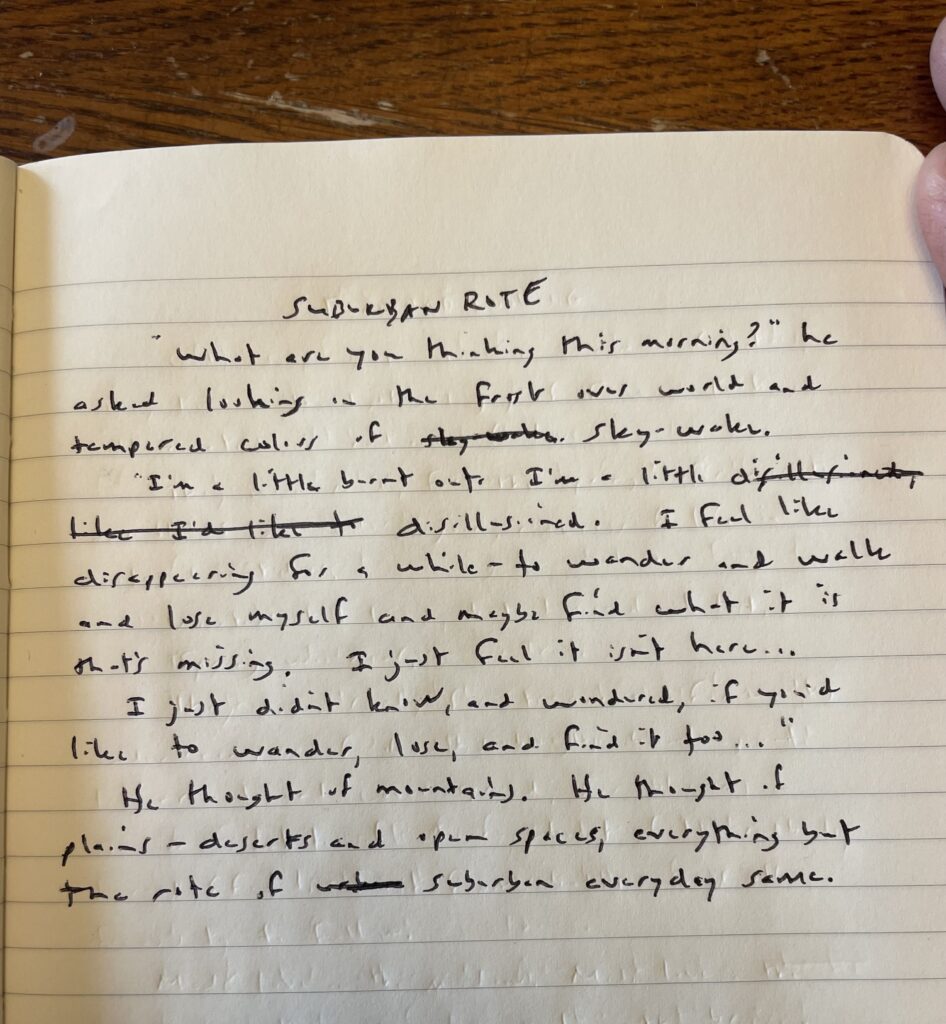 SUBURBAN ROTE
"What are you thinking this morning?" he
asked looking in the frost over world and
tempered colors of sky-wake. sky-wake.
"I'm a little burnt out. I'm a little disillusioned,
like I'd like to disillusioned. I feel like
disappearing for a while - to wander and walk
and lose myself and maybe find what it is
that's missing. I just feel it isn't here...
I just didn't know, and wondered, if you'd
like to wander, lose, and find it too..."
He thought of mountains. He thought of
plains - deserts and open spaces, everything but
the rote of suburban everyday same.